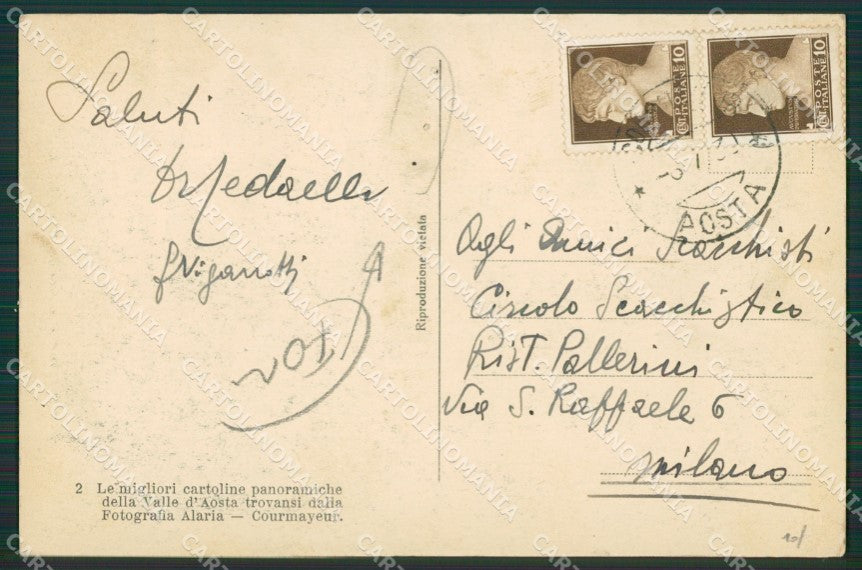 Saluti
Agli Amici Scacchisti
Circolo Scacchistico
Rist. Pallerini
Via S. Raffaele 6
Milano
Riproduzione vietata
2 Le migliori cartoline panoramiche
della Valle d'Aosta trovansi dalla
Fotografia Alaria — Courmayeur.
POSTE ITALIANE
CENT. 10
POSTE ITALIANE
CENT. 10
POSTA
CARTOLINOMANIA